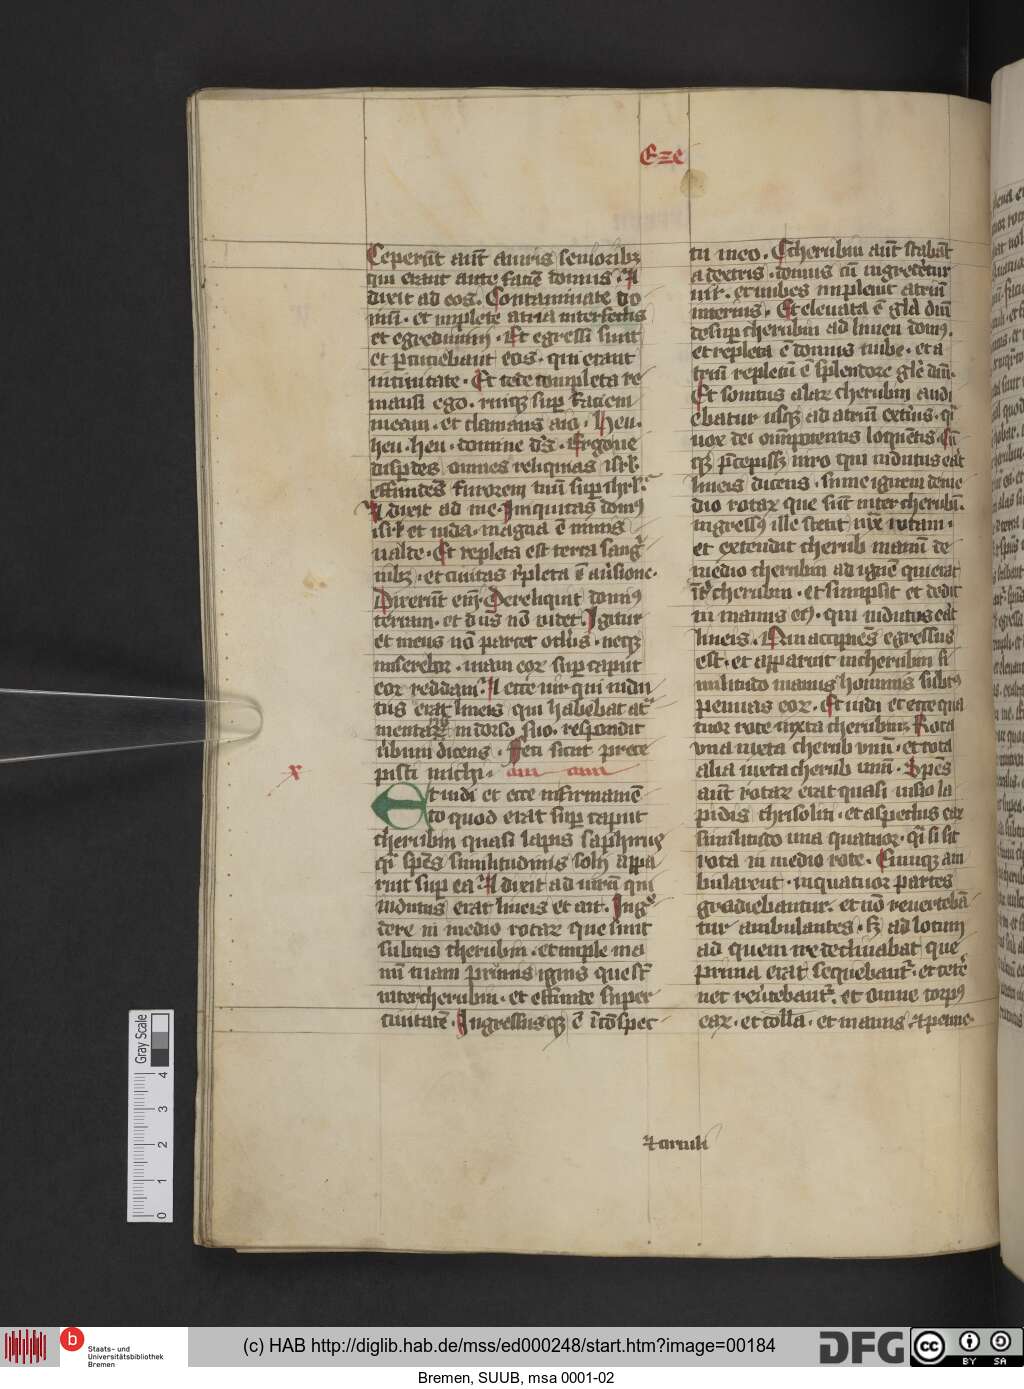 Eze
Ceperūt aūt a uiris senioribꝫ
qui erant ante faciē domus. Et
dixit ad eos. Contaminate do
mū. et implete atria interfectis
et egredimini. Et egressi sunt
et percuciebant eos. qui erant
in ciuitate. Et cede completa re
mansi ego. ruiqꝫ sup faciem
meam. et clamans aio. heu.
heu. heu. domine dꝰs. Ergone
disperdes omnes reliquias isrl.
effundēs furorem tuū sup ihrlm.
Et dixit ad me. Iniquitas domꝰ
isrl et iuda. magna ē nimis
ualde. Et repleta est terra sangⁱ
nibꝫ. et ciuitas repleta ē auersione.
Dixerūt enī. Dereliquit domꝰ
terram. et dūs nō uidet. Igitur
et meus nō parcet oclꝰs. neqꝫ
miserebor. uiam eoꝝ sup caput
eoꝝ reddam. Et ecce uir qui indu
tus erat lineis qui habebat at
mentariū in dorso suo. respondit
ubum dicens. Feci sicut prece
pisti michi.
x
Et uidi et ecce in firmamē
to quod erat sup caput
cherubin quasi lapis saphirus
qⁱ spēs similitudinis solij appa
ruit sup ea. Et dixit ad uirū qui
indutus erat lineis et ait. Ingᵉ
dere in medio rotaꝝ que sunt
subtus cherubin. et imple ma
nū tuam prunis ignis que sūt
inter cherubin. et effunde super
ciuitatē. Ingressusqꝫ ē ī cōspec
tu meo. Cherubin aūt stabāt
a dextris. domus cū ingrederetur
uir. et nubes impleuit atriū
interius. Et eleuata ē glā dūi
desup cherubin ad limen domꝰ.
et repleta ē domus nube. et a
triū repletū ē splendore glē dūi.
Et sonitus alaꝝ cherubin audi
ebatur usqꝫ ad atriū exterius. qⁱ
uox dei om̄ipotentis loquentis. Cū
qꝫ precepissꝫ uiro qui indutus erat
lineis dicens. sume ignem de me
dio rotaꝝ que sūt inter cherubin.
ingressꝰ ille stetit iuxta rotam.
et extendit cherub manū de
medio cherubin ad ignē qui erat
int̄ cherubin. et sumpsit et dedit
in manus eiꝰ. qui indutus erat
lineis. Qui accipiens egressus
est. et apparuit in cherubin si
militudo manus hominis subtus
pennas eoꝝ. Et uidi et ecce qua
tuor rote iuxta cherubin. Rota
vna iuxta cherub vnū. et rota
alia iuxta cherub unū. Spēs
aūt rotaꝝ erat quasi uisio la
pidis chrisoliti. et aspectus eaꝝ
similitudo una quatuor. qⁱ si sit
rota in medio rote. Cumqꝫ am
bularent. in quatuor partes
gradiebantur. et nō reuerteban
tur ambulantes. sꝫ ad locum
ad quem ire declinabat que
prima erat sequebantᷣ. et cetē
nec reūtebantᷣ. et omne corpꝰ
eaꝝ. et colla. et manus. et penne.
et circuli
Gray Scale
4
3
2
1
0
b
Staats- und
Universitätsbibliothek
Bremen
(c) HAB http://diglib.hab.de/mss/ed000248/start.htm?image=00184
DFG
cc
BY SA
Bremen, SUUB, msa 0001-02